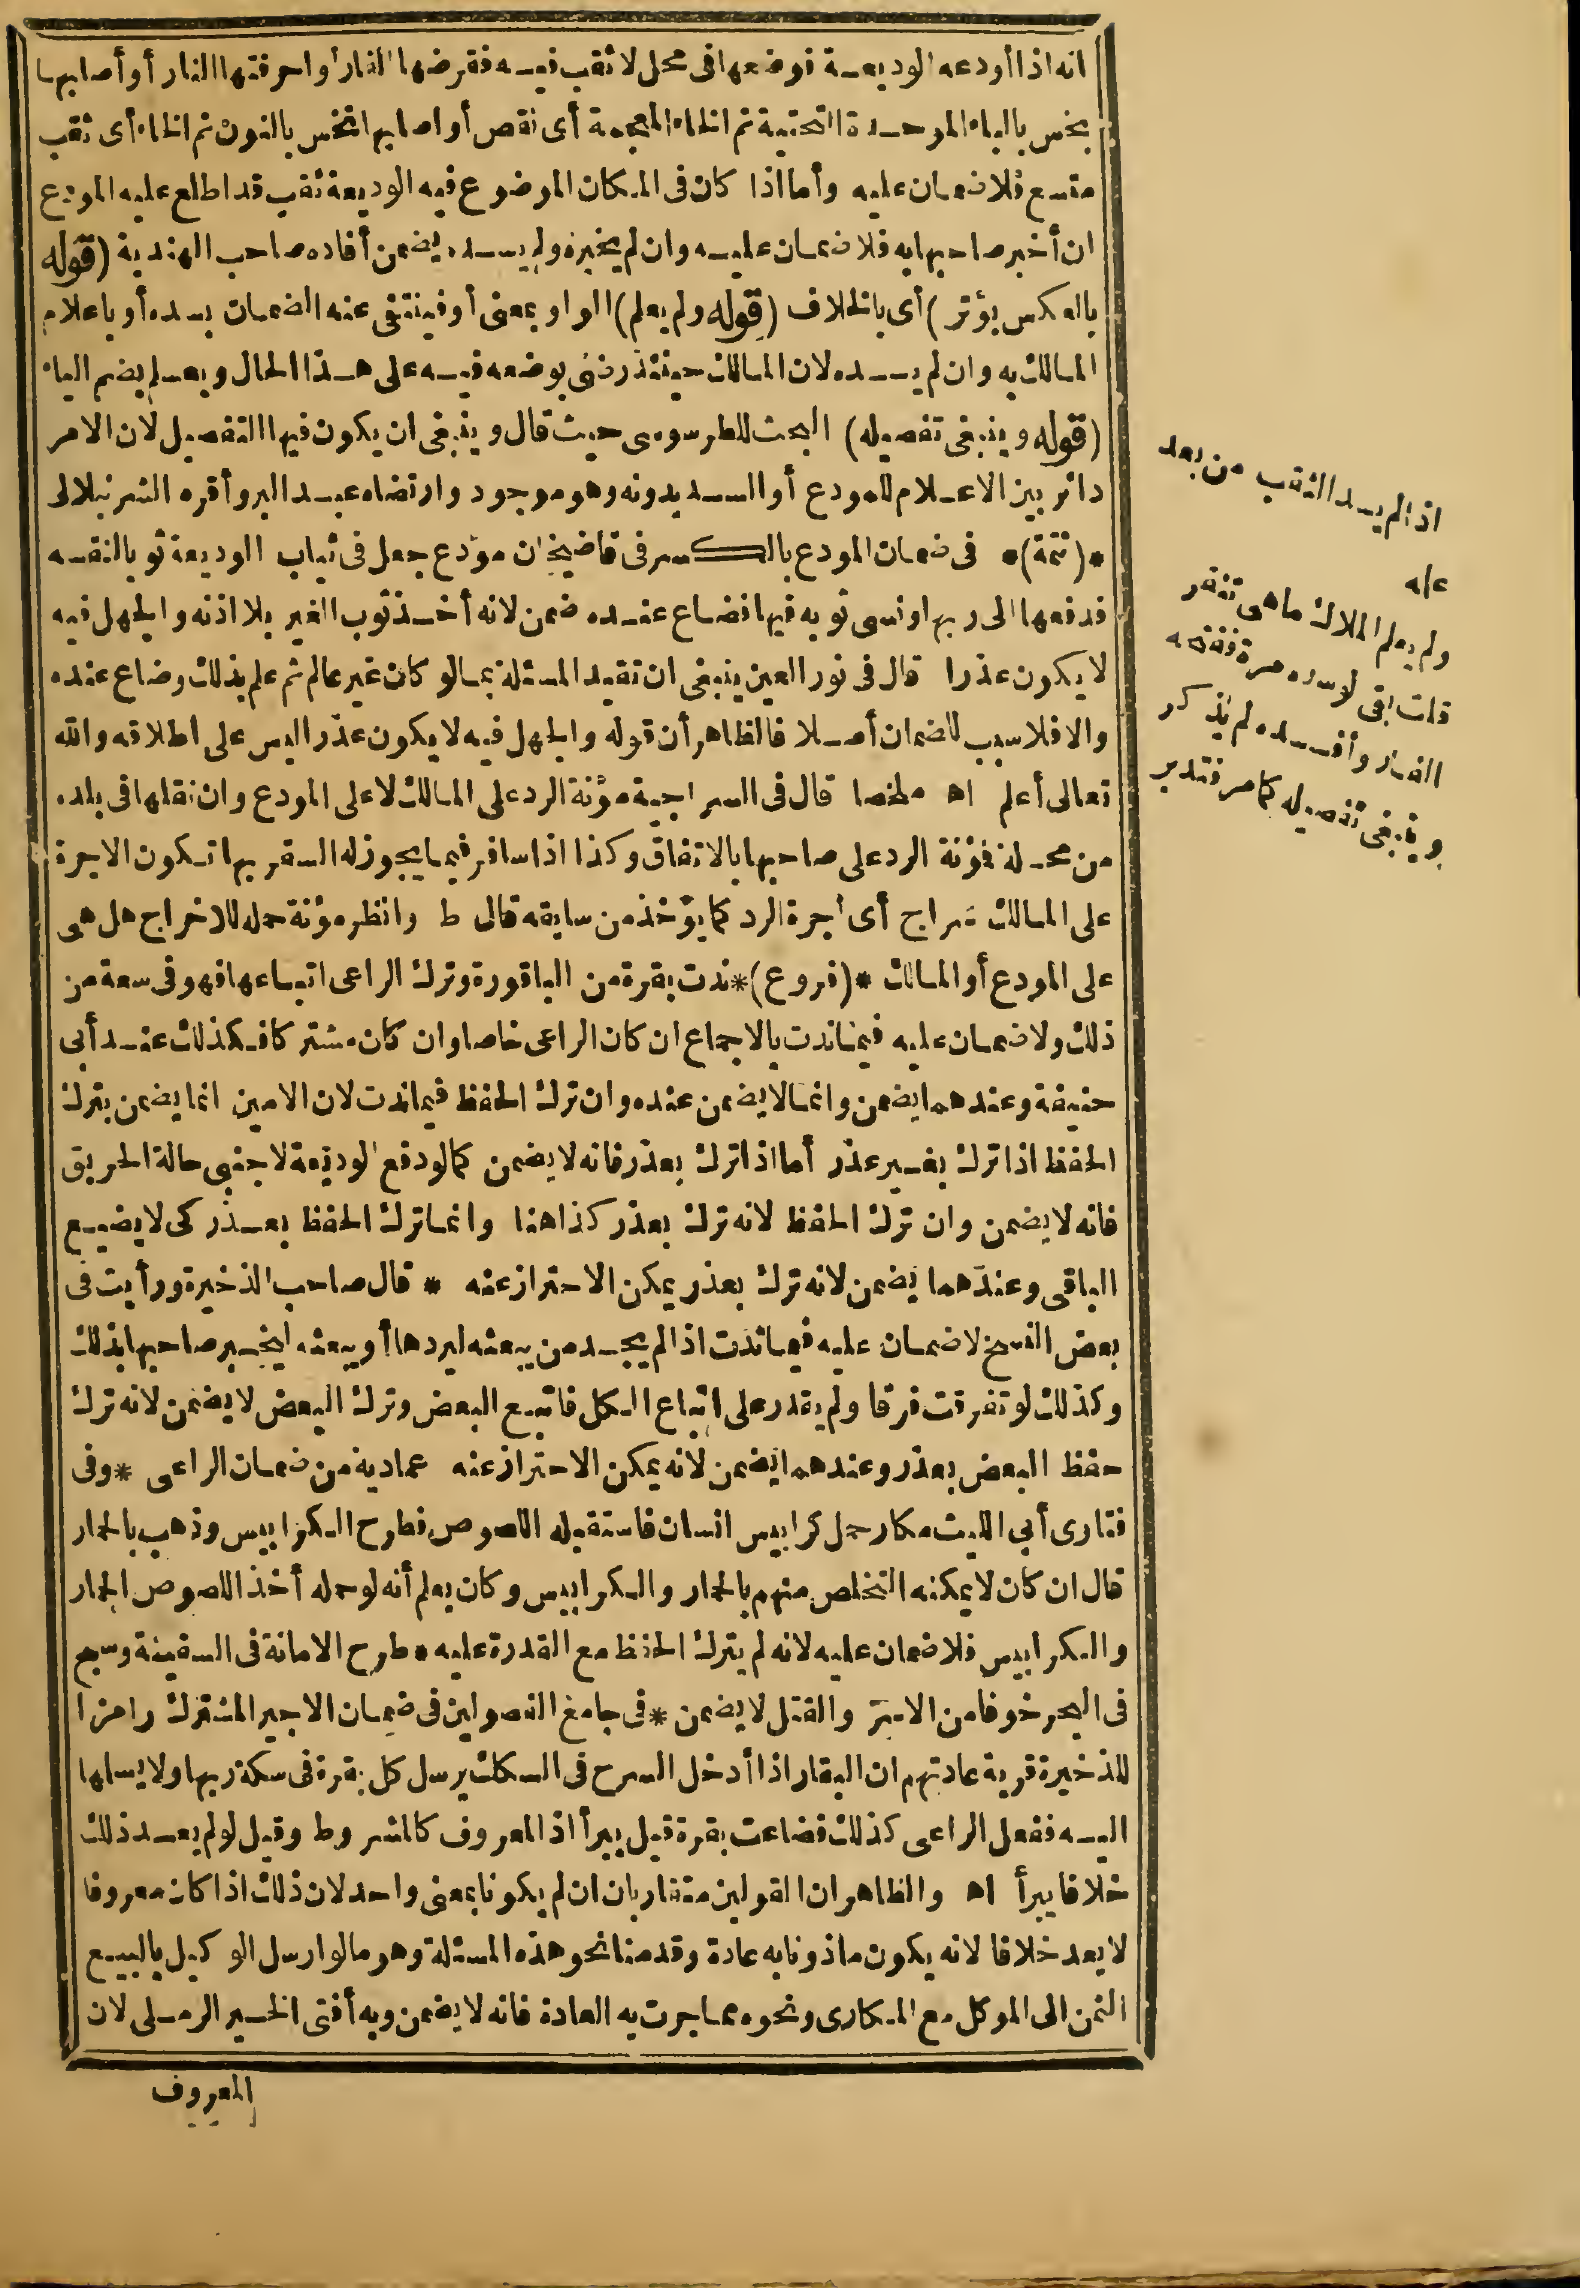 انه اذا أودعه الوديعة فوضعها فى محل لا ثقب فيه فقرضها الفار أو احرقتها النار أو أصابها
بخس بالباء الموحدة التحتية ثم الخاء المعجمة أى نقص أو اصابها نخس بالنون ثم الخاء أى ثقب
متسع فلا ضمان عليه وأما اذا كان فى المكان الموضوع فيه الوديعة ثقب قد اطلع عليه المودع
ان أخبر صاحبها به فلا ضمان عليه وان لم يخبره ولم يسده يضمن أفاده صاحب الهندية (قوله
بالعكس يؤثر) أى بالخلاف (قوله ولم يعلم) الواو بمعنى أو فينتفى عنه الضمان بسده أو باعلام
المالك به وان لم يسده لان المالك حينئذ رضى بوضعه فيه على هذا الحال ويعلم بضم الياء
(قوله وينبغى تفصيله) البحث للطرسوسى حيث قال وينبغى ان يكون فيها التفصيل لان الامر
دائر بين الاعلام للمودع أو السد بدونه وهو موجود وارتضاه عبد البر وأقره الشرنبلالى
*(تتمة)* فى ضمان المودع بالكسر فى قاضيخان مودع جعل فى ثياب الوديعة ثوبا لنفسه
فدفعها الى ربها ونسى ثوبه فيها فضاع عنده ضمن لانه أخذ ثوب الغير بلا اذنه والجهل فيه
لا يكون عذرا قال فى نور العين ينبغى ان تقيد المسئلة بما لو كان غير عالم ثم علم بذلك وضاع عنده
والا فلا سبب للضمان أصلا فالظاهر أن قوله والجهل فيه لا يكون عذرا ليس على اطلاقه والله
تعالى أعلم اه ملخصا قال فى السراجية مؤنة الرد على المالك لا على المودع وان نقلها فى بلده
من محلة فمؤنة الرد على صاحبها بالاتفاق وكذا اذا سافر فيما يجوز له السفر بها تكون الاجرة
على المالك سراج أى أجرة الرد كما يؤخذ من سابقه قال ط وانظر مؤنة حمله للاخراج هل هى
على المودع أو المالك *(فروع)* ندت بقرة من الباقورة وترك الراعى اتباعها فهو فى سعة من
ذلك ولا ضمان عليه فيما ندت بالاجماع ان كان الراعى خاصا وان كان مشتركا فكذلك عند أبى
حنيفة وعندهما يضمن وانما لا يضمن عنده وان ترك الحفظ فيما ندت لان الامين انما يضمن بترك
الحفظ اذا ترك بغير عذر أما اذا ترك بعذر فانه لا يضمن كما لو دفع الوديعة لاجنبى حالة الحريق
فانه لا يضمن وان ترك الحفظ لانه ترك بعذر كذا هنا وانما ترك الحفظ بعذر كى لا يضيع
الباقى وعندهما يضمن لانه ترك بعذر يمكن الاحتراز عنه * قال صاحب الذخيرة ورأيت فى
بعض النسخ لا ضمان عليه فيما ندت اذا لم يجد من يبعثه ليردها أو يبعثه ليخبر صاحبها بذلك
وكذلك لو تفرقت فرقا ولم يقدر على اتباع الكل فاتبع البعض وترك البعض لا يضمن لانه ترك
حفظ البعض بعذر وعندهما يضمن لانه يمكن الاحتراز عنه عمادية من ضمان الراعى *وفى
فتاوى أبى الليث مكار حمل كرابيس انسان فاستقبله اللصوص فطرح الكرابيس وذهب بالحمار
قال ان كان لا يمكنه التخلص منهم بالحمار والكرابيس وكان يعلم أنه لو حمله أخذ اللصوص الحمار
والكرابيس فلا ضمان عليه لانه لم يترك الحفظ مع القدرة عليه * طرح الامانة فى السفينة وسبح
فى البحر خوفا من الاسر والقتل لا يضمن *فى جامع الفصولين فى ضمان الاجير المشترك رامزا
للذخيرة قرية عادتهم ان البقار اذا أدخل السرح فى السكك يرسل كل بقرة فى سكة ربها ولا يسلمها
اليه ففعل الراعى كذلك فضاعت بقرة قيل يبرأ اذ المعروف كالمشروط وقيل لو لم يعد ذلك
خلافا يبرأ اه والظاهر ان القولين متقاربان ان لم يكونا بمعنى واحد لان ذلك اذا كان معروفا
لا يعد خلافا لانه يكون ماذونا به عادة وقدمنا نحو هذه المسئلة وهو ما لو ارسل الوكيل بالبيع
الثمن الى الموكل مع المكارى ونحوه مما جرت به العادة فانه لا يضمن وبه أفتى الخير الرملى لان
المعروف
اذا لم يسد الثقب من بعد
علمه
ولم يعلم الملاك ما هى تنقر
قلت بقى لو سده مرة ففتحه
الفار وأفسده لم يذكر
وينبغى تفصيله كما مر فتدبر